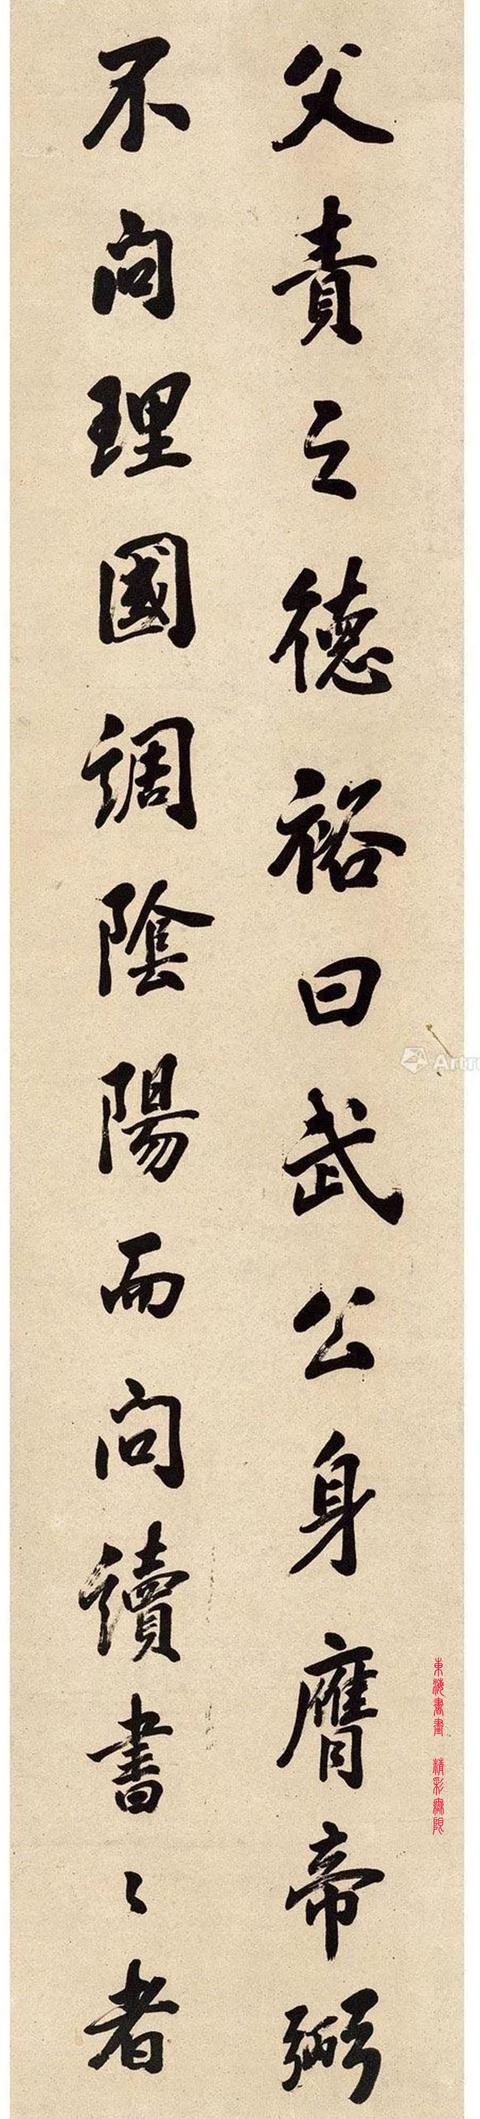 父責之德裕曰武公身膺帝弼
不問理國調陰陽而問讀書〻者
東海書畫 精彩無限